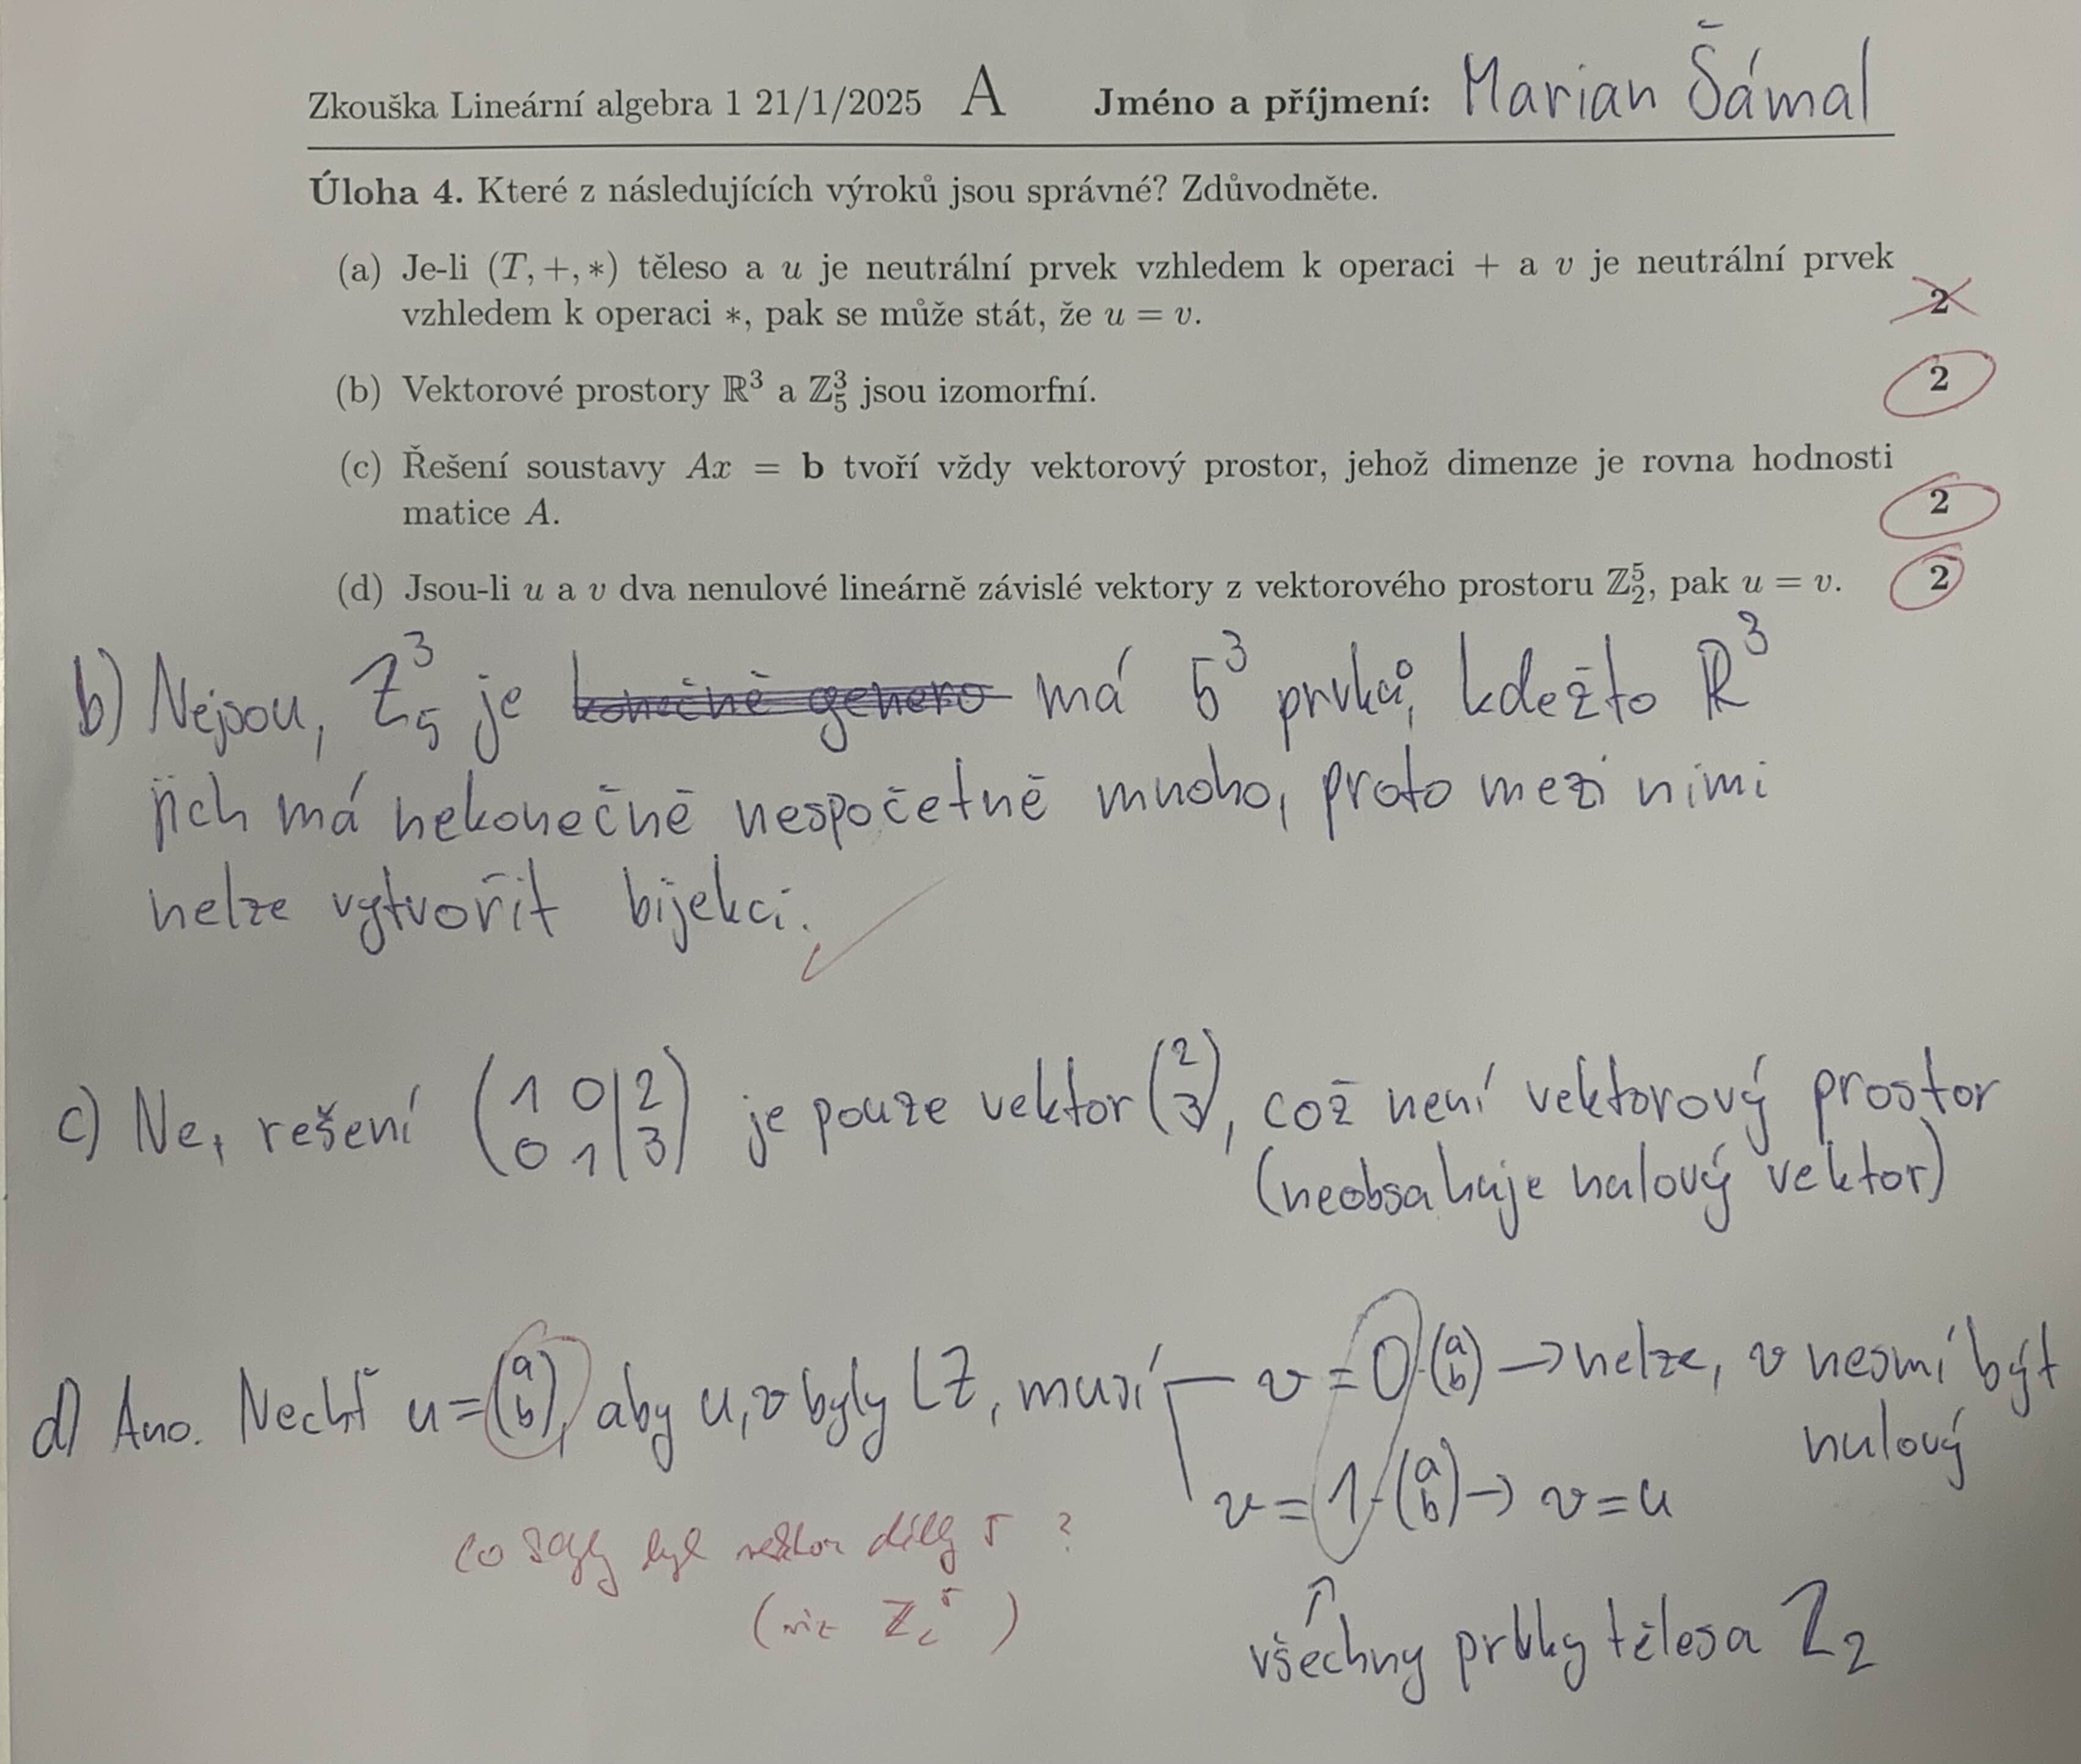 Zkouška Lineární algebra 1 21/1/2025 A Jméno a příjmení: Marian Šámal
Úloha 4. Které z následujících výroků jsou správné? Zdůvodněte.
(a) Je-li (T, +, *) těleso a u je neutrální prvek vzhledem k operaci + a v je neutrální prvek
vzhledem k operaci *, pak se může stát, že u = v. 2
(b) Vektorové prostory ℝ³ a ℤ₅³ jsou izomorfní. 2
(c) Řešení soustavy Ax = b tvoří vždy vektorový prostor, jehož dimenze je rovna hodnosti
matice A. 2
(d) Jsou-li u a v dva nenulové lineárně závislé vektory z vektorového prostoru ℤ₂⁵, pak u = v. 2
b) Nejsou, ℤ₅³ je konečně genero má 5³ prvků, kdežto ℝ³
jich má nekonečně nespočetně mnoho, proto mezi nimi
nelze vytvořit bijekci.
c) Ne, rešení (1 0 | 2; 0 1 | 3) je pouze vektor (2; 3), což není vektorový prostor
(neobsahuje nulový vektor)
d) Ano. Nechť u = (a; b), aby u, v byly LZ, musí v = 0·(a; b) → nelze, v nesmí být
nulový
v = 1·(a; b) → v = u
↑
všechny prvky tělesa ℤ₂
co kdyby byl vektor délky 5 ?
(viz ℤ₂⁵)